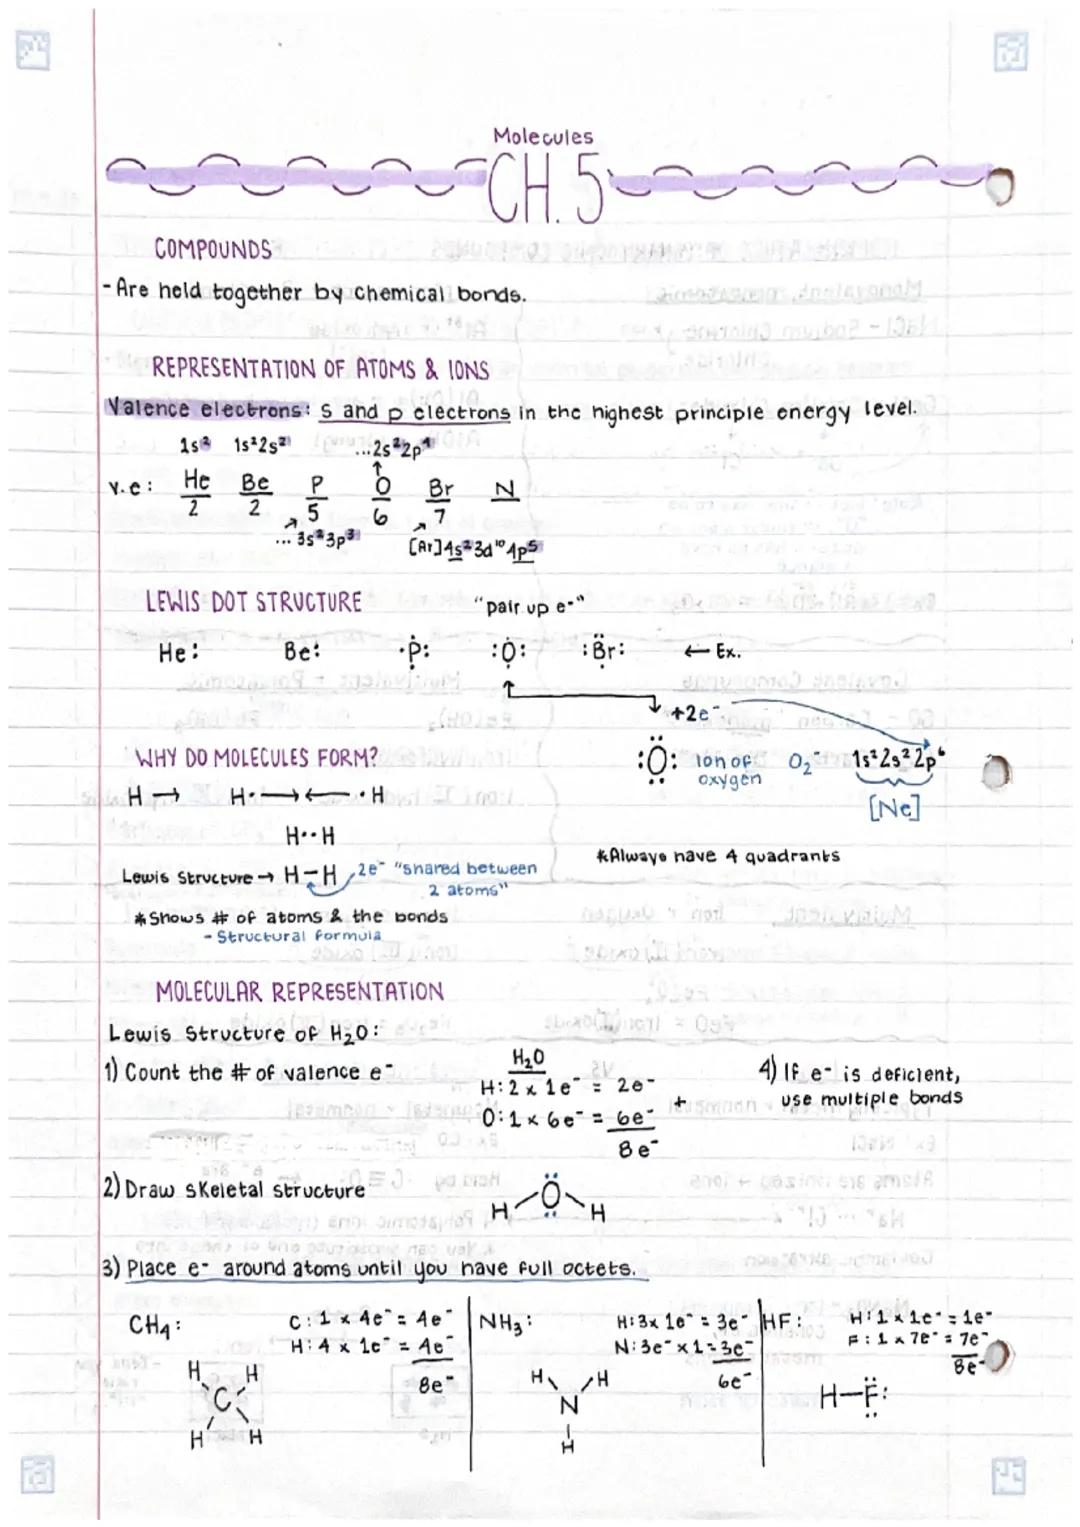 Molecules
CH. 5
COMPOUNDS
- Are held together by chemical bonds.
REPRESENTATION OF ATOMS & IONS
Valence electrons: s and p electrons in the highest principle energy level.
1s² 1s²2s² ...2s²2p⁴
v.e: He Be P O Br N
2 2 5 6 7
... 3s²3p³ [Ar]4s²3d¹⁰4p⁵
LEWIS DOT STRUCTURE "pair up e-"
He: Be: ·P: :O: :Br: ← Ex.
+2e⁻
:O: ion of oxygen O₂⁻ 1s²2s²2p⁶
[Ne]
WHY DO MOLECULES FORM?
H → H· → ← ·H
H··H
Lewis Structure → H-H 2e⁻ "shared between
2 atoms"
*Always have 4 quadrants
*Shows # of atoms & the bonds
- Structural formula
MOLECULAR REPRESENTATION
Lewis Structure of H₂O:
1) Count the # of valence e-
H₂O
H: 2 x 1e⁻ = 2e-
O: 1 x 6e⁻ = 6e-
+
8e⁻
4) If e- is deficient,
use multiple bonds
2) Draw skeletal structure
H O H
3) Place e- around atoms until you have full octets.
CH₄: C: 1 x 4e⁻ = 4e⁻
H: 4 x 1e⁻ = 4e⁻
8e⁻
H H
C
H H
NH₃: H: 3x 1e⁻ = 3e⁻
N: 3e⁻ x 1 = 3e⁻
6e⁻
H H
N
H
HF: H: 1 x 1e⁻ = 1e⁻
F: 1 x 7e⁻ = 7e⁻
8e⁻
H-F: